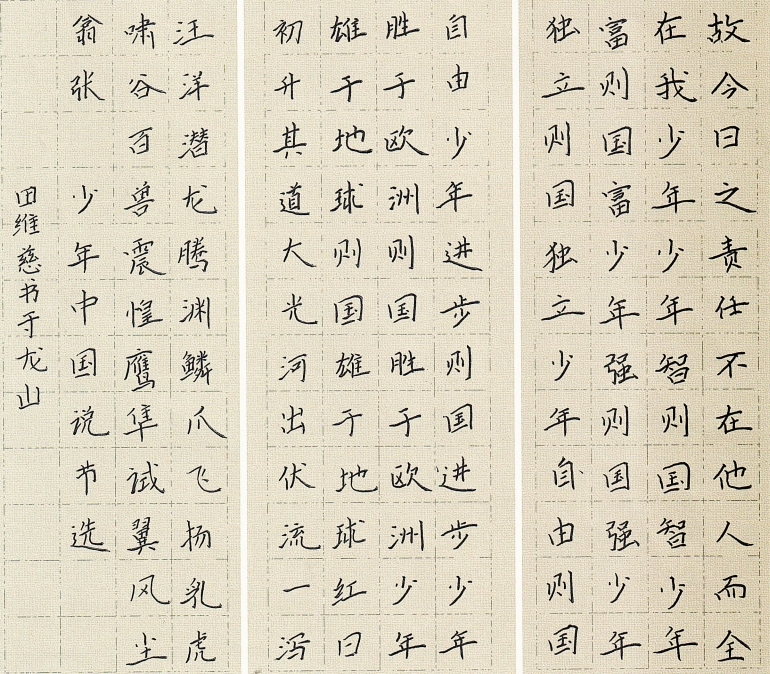 故今日之责任不在他人而全
在我少年少年智则国智少年
富则国富少年强则国强少年
独立则国独立少年自由则国
自由少年进步则国进步少年
胜于欧洲则国胜于欧洲少年
雄于地球则国雄于地球红日
初升其道大光河出伏流一泻
汪洋潜龙腾渊鳞爪飞扬乳虎
啸谷百兽震惶鹰隼试翼风尘
翕张 少年中国说节选
田维慈书于龙山